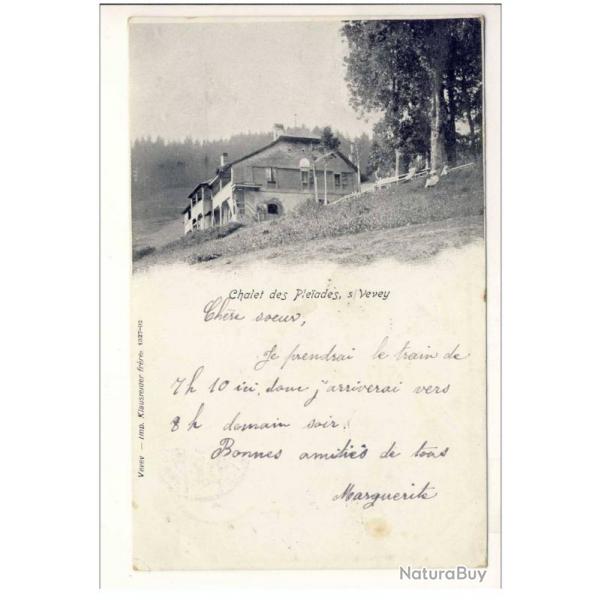 Chalet des Pleïades, s/Vevey
Chère soeur,
Je prendrai le train de
7h 10 ici, donc j'arriverai vers
8h domain soir.
Bonnes amitiés de tous
Marguerite
Vevey — Imp. Klausfelder frères
NaturaBuy